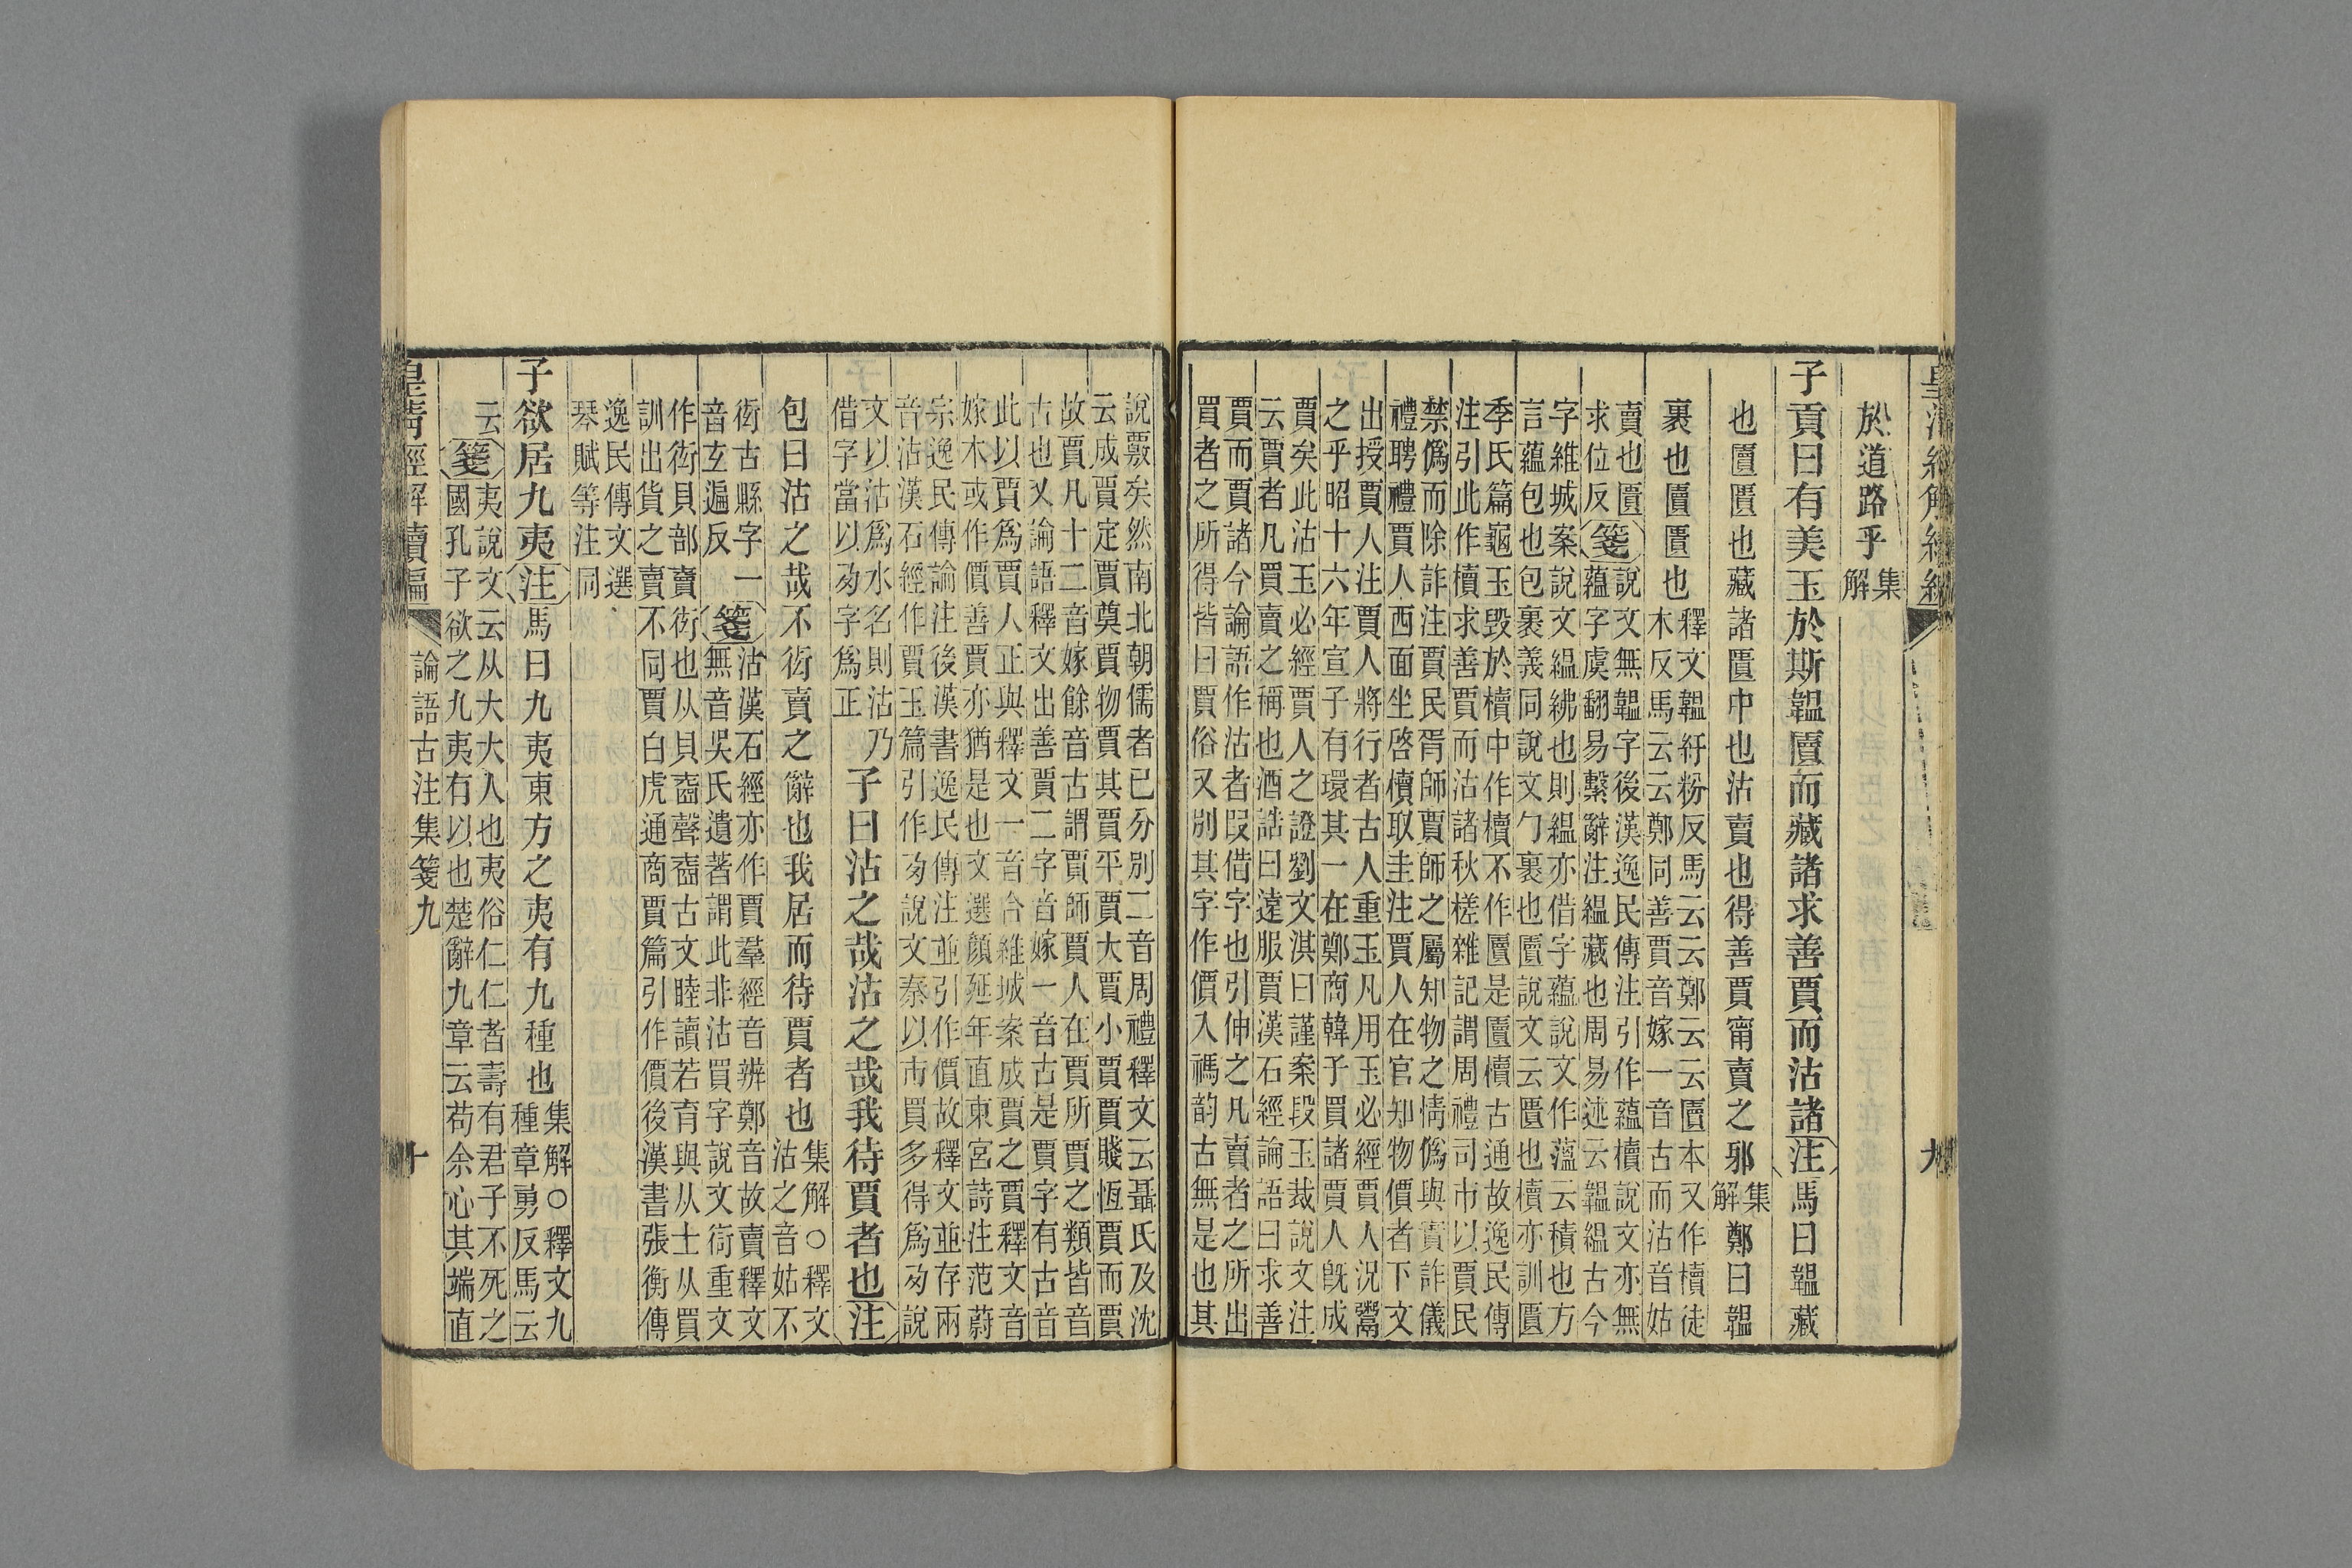 於道路乎集
解
子貢曰有美玉於斯韞匵而藏諸求善賈而沽諸注馬曰韞藏
也匵匱也藏諸匱中也沽賣也得善賈甯賣之邪集
解鄭曰韞
裹也匵匱也釋文韞紆粉反馬云云鄭云云匵本又作櫝徒
木反馬云云鄭同善賈音嫁一音古而沽音姑
賣也匱
求位反箋說文無韞字後漢逸民傳注引作蘊櫝說文亦無
蘊字虞翻易繫辭注緼藏也周易述云韞緼古今
字維城案說文緼紼也則緼亦借字蘊說文作薀云積也方
言蘊包也包裹義同說文勹裹也匵說文云匱也櫝亦訓匱
季氏篇龜玉毀於櫝中作櫝不作匵是匵櫝古通故逸民傳
注引此作櫝求善賈而沽諸秋槎雜記謂周禮司市以賈民
禁僞而除詐注賈民胥師賈師之屬知物之情僞與實詐儀
禮聘禮賈人西面坐啓櫝取圭注賈人在官知物價者下文
出授賈人注賈人將行者古人重玉凡用玉必經賈人況鬻
之乎昭十六年宣子有環其一在鄭商韓子買諸賈人旣成
賈矣此沽玉必經賈人之證劉文淇曰謹案段玉裁說文注
云賈者凡買賣之稱也酒誥曰遠服賈漢石經論語曰求善
賈而賈諸今論語作沽者叚借字也引伸之凡賣者之所出
買者之所得皆曰賈俗又別其字作價入禡韵古無是也其
說覈矣然南北朝儒者已分別二音周禮釋文云聶氏及沈
云成賈定賈奠賈物賈其賈平賈大賈小賈賤恆賈而賈
故賈凡十二音嫁餘音古謂賈師賈人在賈所賈之類皆音
古也又論語釋文出善賈二字音嫁一音古是賈字有古音
此以賈爲賈人正與釋文一音合維城案成賈之賈釋文音
嫁木或作價善賈亦猶是也文選顏延年直東宮詩注范蔚
宗逸民傳論注後漢書逸民傳注並引作價故釋文並存兩
音沽漢石經作賈玉篇引作夃說文秦以市買多得爲夃說
文以沽爲水名則沽
借字當以夃字爲正乃
子曰沽之哉沽之哉我待賈者也注
包曰沽之哉不衒賣之辭也我居而待賈者也集解○釋文
沽之音姑不
衒古縣字一
音玄遍反箋沽漢石經亦作賈羣經音辨鄭音故賣釋文
無音吳氏遺著謂此非沽買字說文衙重文
作衒貝部賣衒也从貝𡍬聲𡍬古文睦讀若育與从士从買
訓出貨之賣不同賈白虎通商賈篇引作價後漢書張衡傳
逸民傳文選
琴賦等注同
子欲居九夷注馬曰九夷東方之夷有九種也集解○釋文九
種章勇反馬云
云箋夷說文云从大大人也夷俗仁仁者壽有君子不死之
國孔子欲之九夷有以也楚辭九章云苟余心其端直
皇清經解續編
論語古注集箋九
十
九